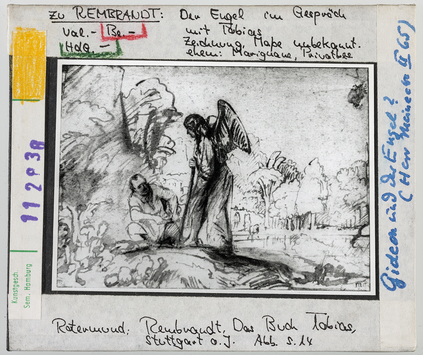 zu REMBRANDT: Der Engel im Gespräch
Val.- Be.- mit Tobias
HdG - Zeichnung, Maße unbekannt.
ehem: Marignane, Privatbes.
Gideon und der Engel?
(Herr Meinecke II 65)
112938
Kunstgesch.
Sem. Hamburg
Rotermund: Rembrandt, Das Buch Tobias,
Stuttgart o.J. Abb. S. 14